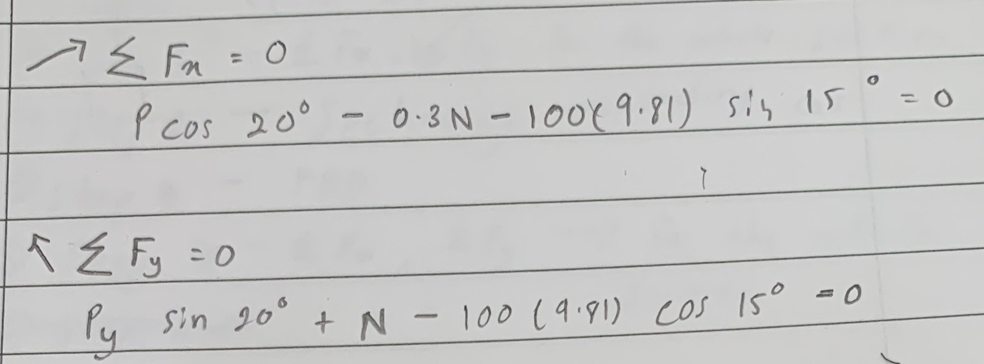 ↗ Σ Fx = 0
P cos 20° - 0.3N - 100(9.81) sin 15° = 0
↖ Σ Fy = 0
Py sin 20° + N - 100 (9.81) cos 15° = 0